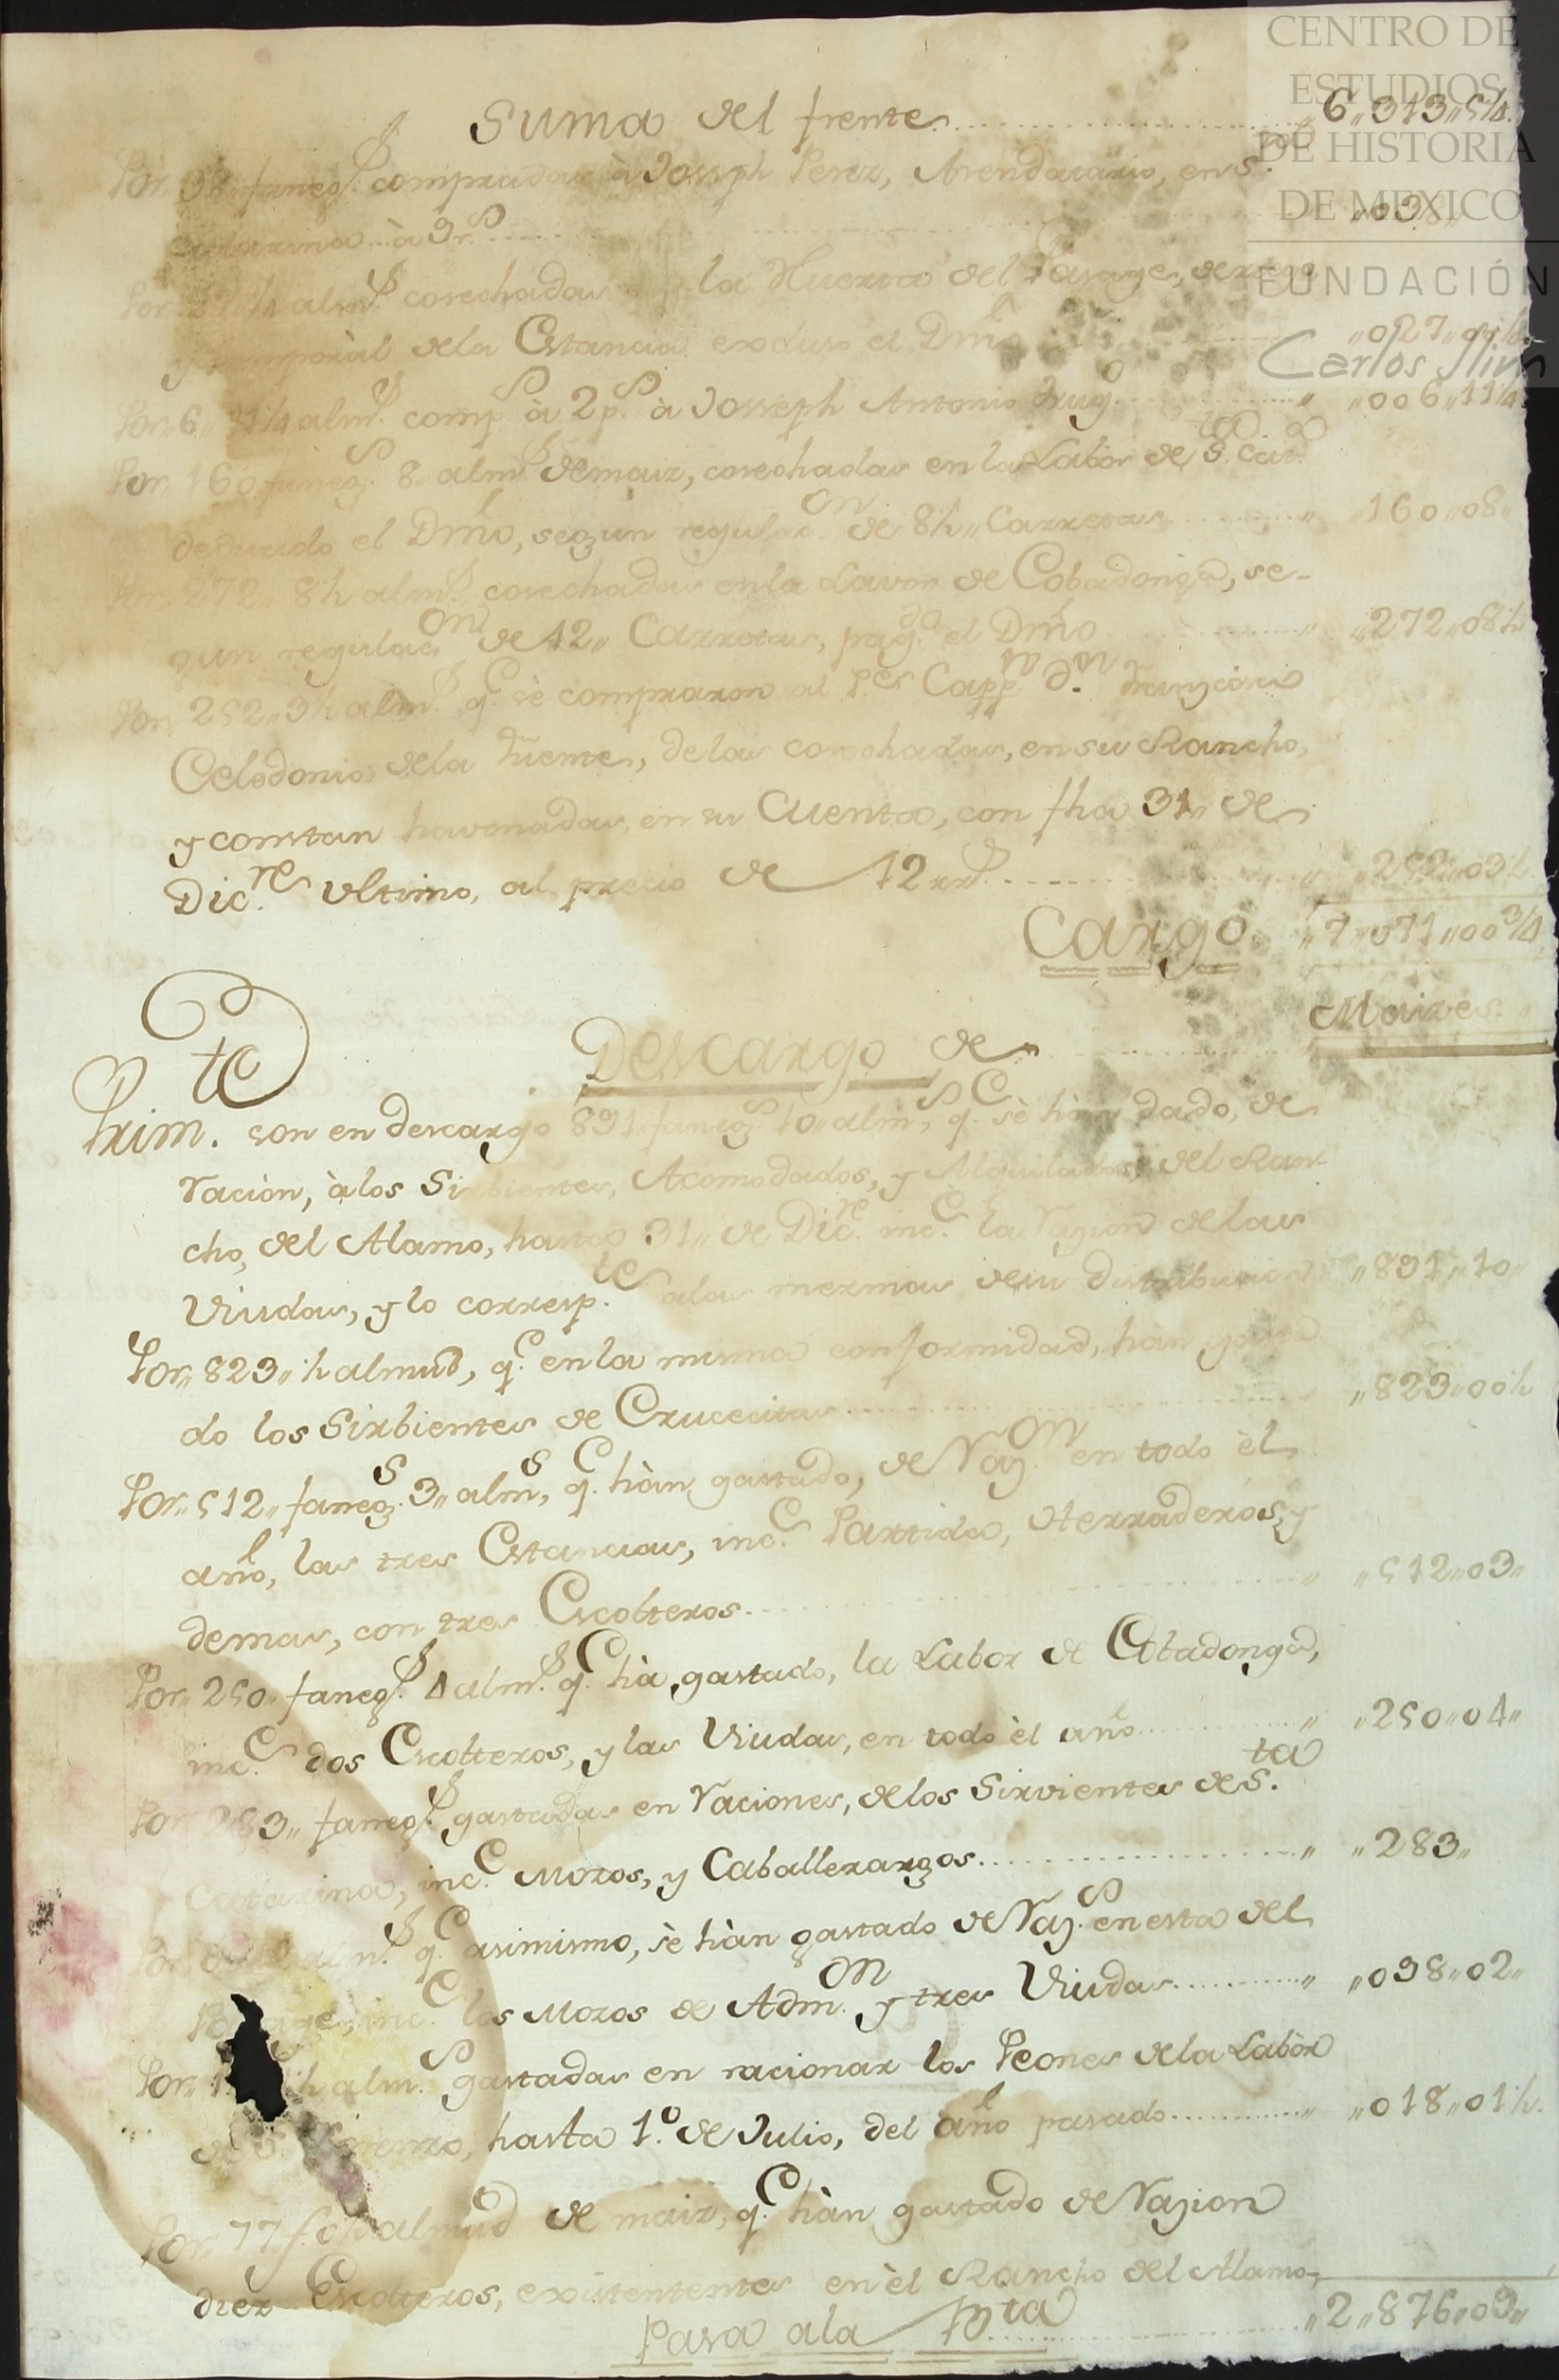 CENTRO DE
ESTUDIOS
DE HISTORIA
DE MEXICO
FUNDACIÓN
Carlos Slim
Suma del frente ,,6,,313,,5¼.
Por,, 38,, faneg.s compradas à Joseph Perez, Arendatario, en S.ta
Catarina à 9 r.s ,,038,,
Por 27 ½ alm.s cosechadas la Huerta del Pasage, de riego
y temporàl dela Estancia excluso el Dmô ,,027,,
Por,, 6,, 11¼ alm.s comp.s à 2 p.s à Joseph Antonio ,,006,,11¼
Por,, 160,, faneg.s 8,, alm.s demaiz, cosechadas en la Labor de S.ta Cat.a
deducido el Dmô, segun regulac.on de 8½,, Carretas ,,160,,08,,
Por,, 272,, 8½ alm.s cosechadas en la Lavor de Cobadonga, se-
gun regulac.on de 12,, Carretas, pag.do el Dmô ,,272,,08½
Por,, 252,, 3½ alm.s q.e sè compraron al Capp.n d.n Francisco
Celedonio dela Fuente, delas cosechadas, en su Rancho,
y constan havonadas en su Cuenta, con fha 31,, de
Dic.re ultimo, al precio de 12 rr.s ,,252,,03½
Cargo ,,7,,071,,00¾
Descargo de Maizes.
Prim.te son en descargo 891,, faneg.s 10,, alm.s, q.e sè hàn dado, de
racion, àlos Sirbientes, Acomodados, y Alquilados del Ran-
cho, del Alamo, hasta 31,, de Dic.re inc.e la razion delas
Viudas, y lo corresp.te alas mermas desu distribucion ,,891,,10,,
Por,, 823,, ½ almud, q.e en la misma conformidad, hàn gasta
do los Sirbientes de Crucecitas ,,823,,00½
Por,, 512,, faneg.s 3,, alm.s, q.e hàn gastado, de Raz.on en todo èl
año, las tres Estancias, inc.e Partida, Herraderos, y
demas, con tres Escolteros ,,512,,03,,
Por,, 250,, faneg.s 4 alm.s q.e hà gastado, la Labor de Cobadonga,
inc.e dos Escolteros, y las Viudas, en todo èl año ,,250,,04,,
Por,, 283,, faneg.s gastadas en raciones, delos Sirvientes de S.ta
Catarina, inc.e Mozos, y Caballerangos ,,283,,
Por alm.s q.e asimismo, sè hàn gastado de Raz.s en esta del
inc.e los Mozos de Adm.on y tres Viudas ,,098,,02,,
Por,, ½ alm.s gastadas en racionar los Peones dela Labòr
hasta 1.º de Julio, del año pasado ,,018,,01½.
Por,, 77 f. almud de maiz, q.e hàn gastado de Razion
diez Escolteros, existententes en èl Rancho del Alamo
Pasa ala B.ta ,,2,,876,,09,,